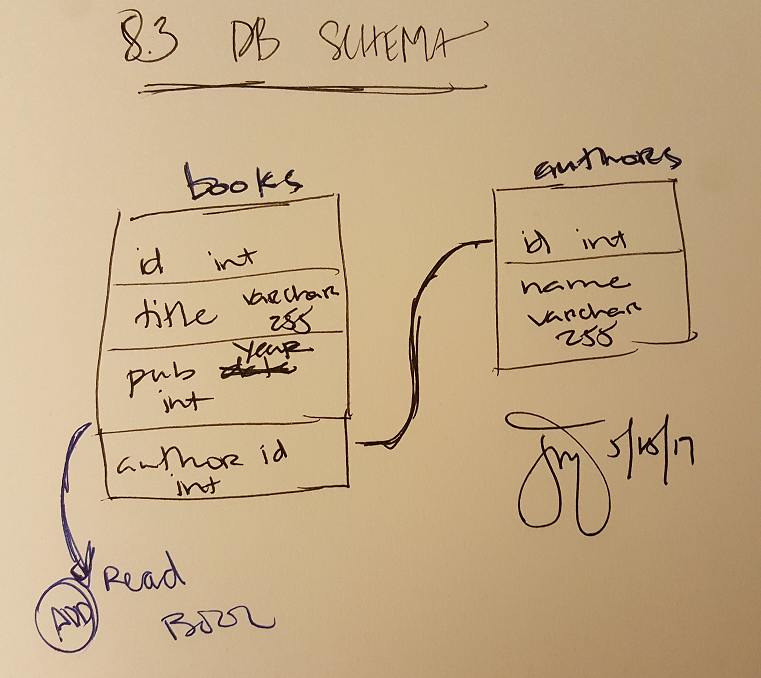 8.3 DB SCHEMA
books
id int
title varchar
255
pub year
date
int
author id
int
authors
id int
name
varchar
255
5/18/17
ADD
Read
Bool